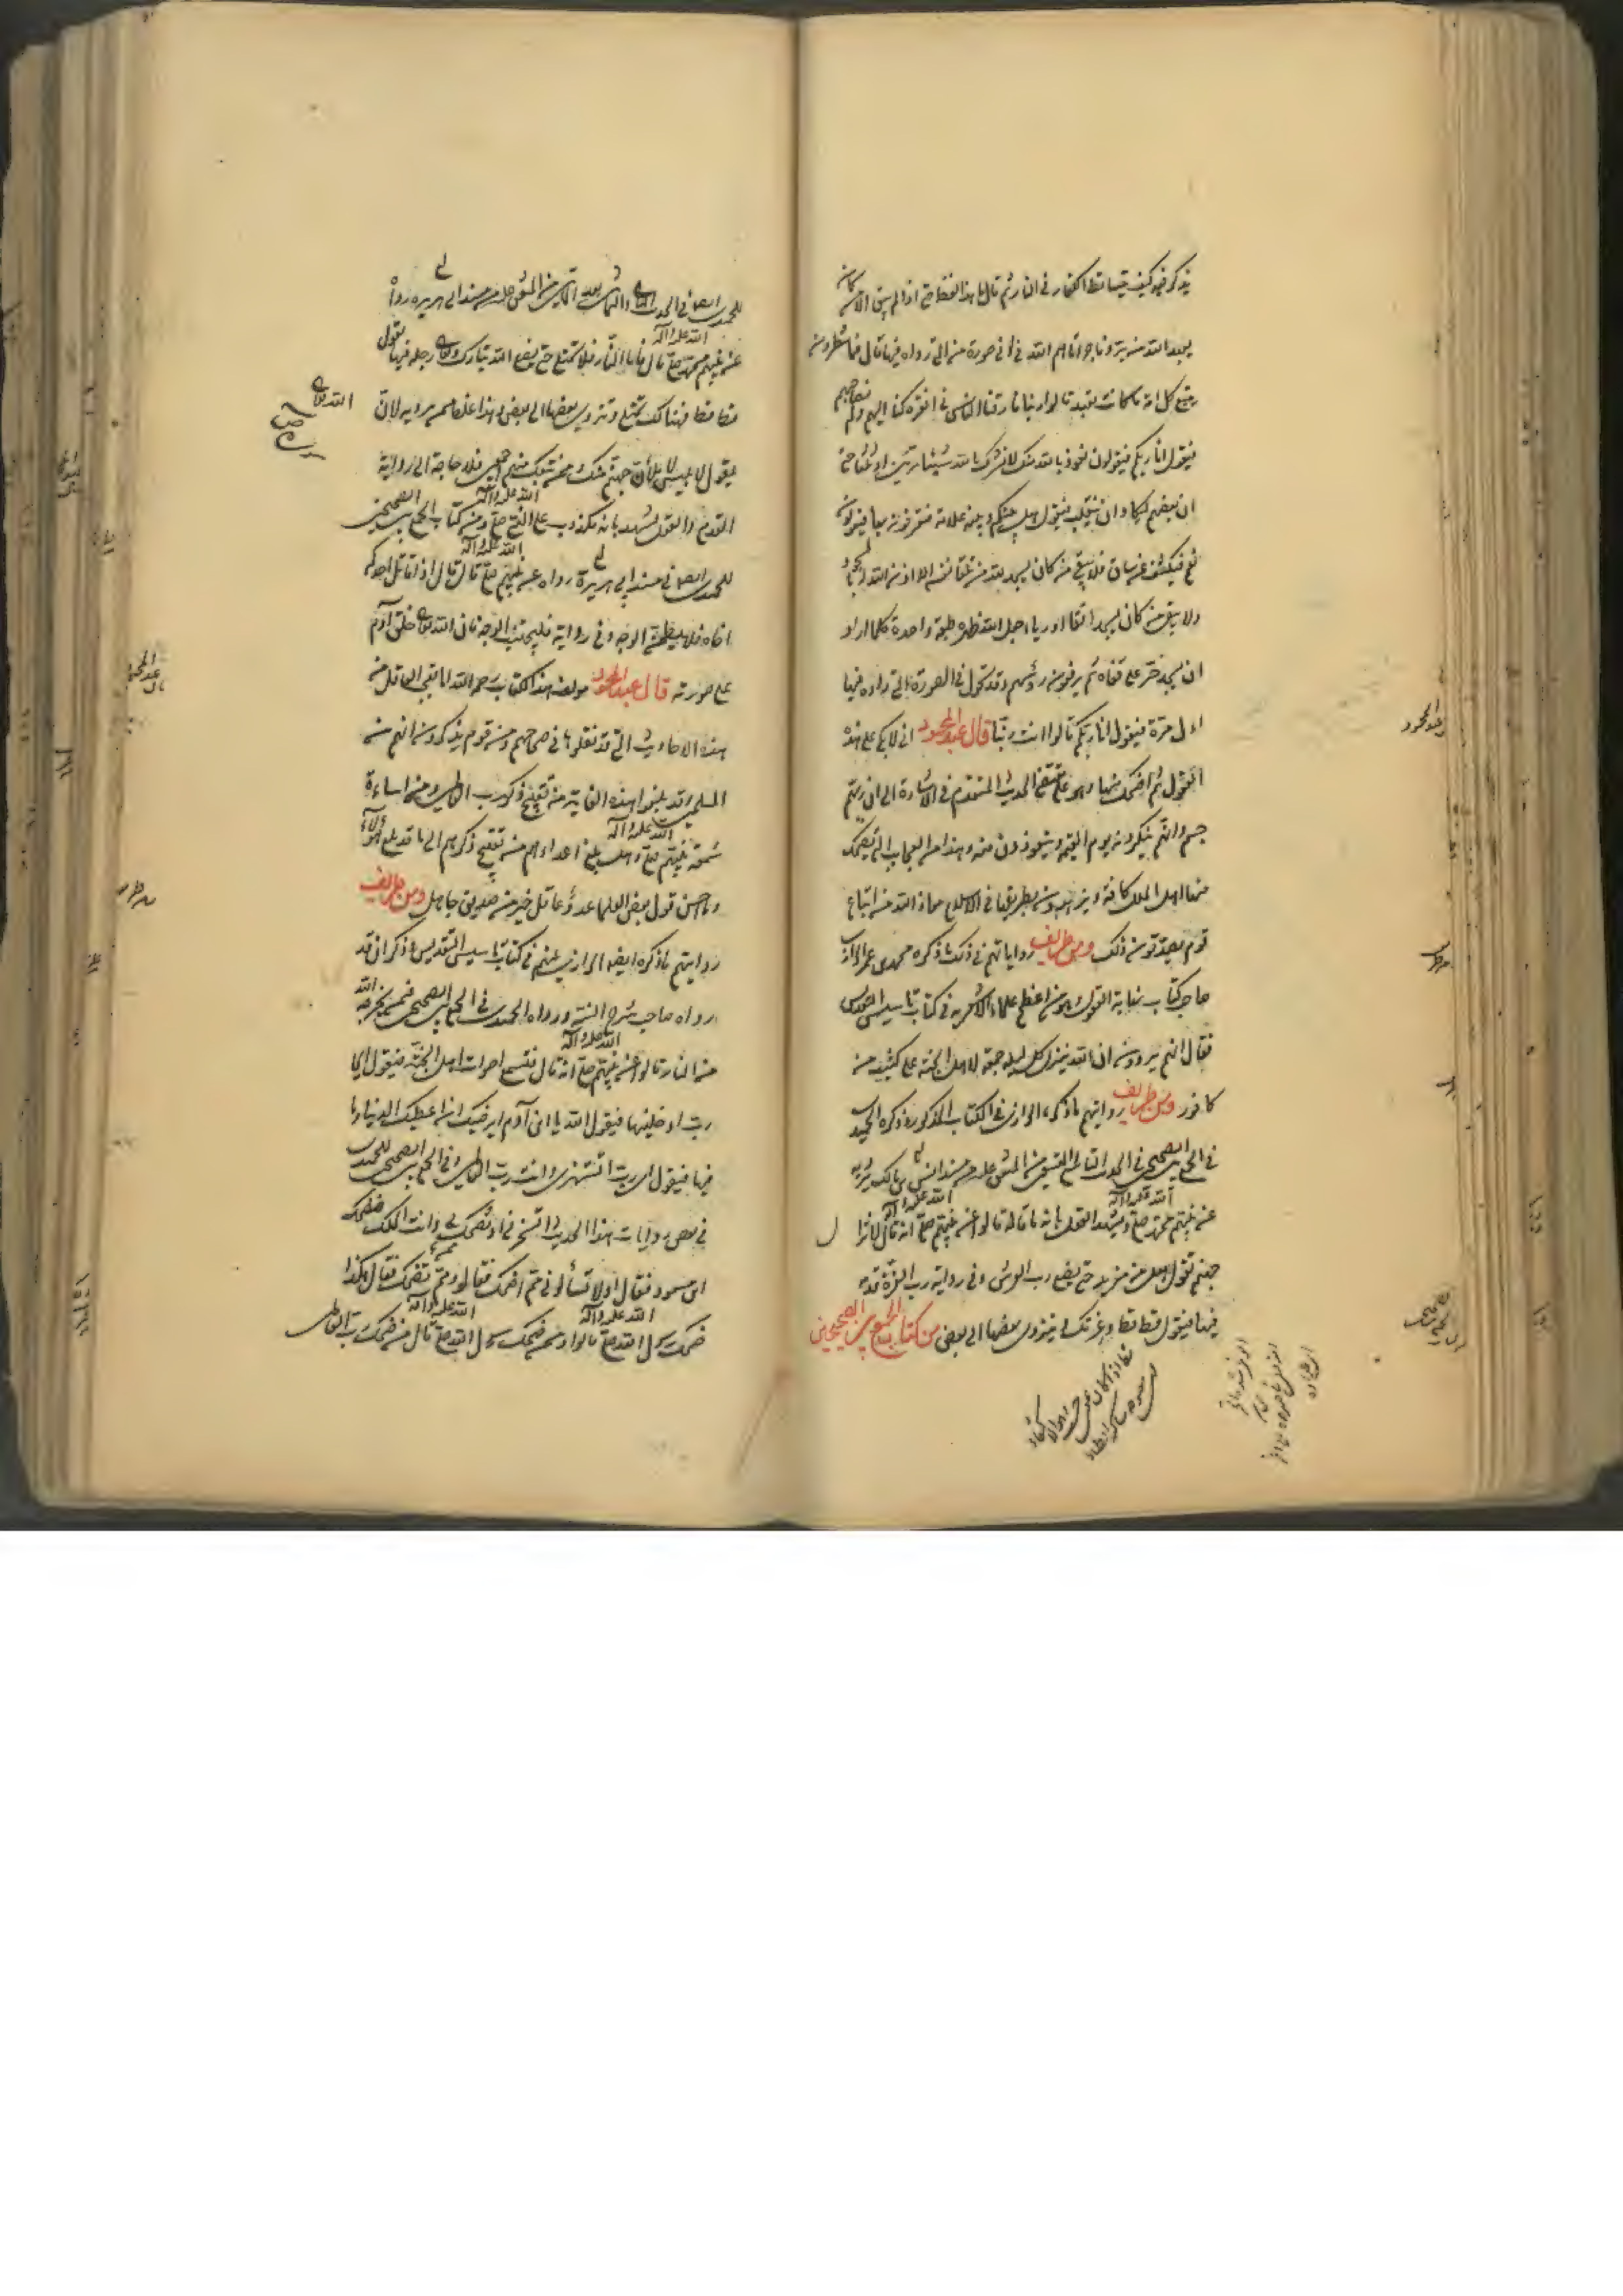 يذكر فيه كيف يتساقط الكفار في النار ثم قال ما هذا لفظه حتى اذا لم يبق الا من كان
يعبد الله من بر وفاجر اتاهم الله في ادنى صورة من التي رأوه فيها قال فما تنتظرون
يتبع كل امة ما كانت تعبد قالوا ربنا فارقنا الناس في افقر ما كنا اليهم ولم نصاحبهم
فيقول انا ربكم فيقولون نعوذ بالله منك لا نشرك بالله شيئا مرتين او ثلثا حتى
ان بعضهم ليكاد ان ينقلب فيقول هل بينكم وبينه علامة فتعرفونه بها فيقولون
نعم فيكشف عن ساق فلا يبقى من كان يسجد لله من تلقاء نفسه الا اذن الله له بالسجود
ولا يبقى من كان يسجد اتقاء او رياء جعل الله ظهره طبقة واحدة كلما اراد
ان يسجد خر على قفاه ثم يرفعون رؤسهم وقد تحول في الصورة التي رأوه فيها
اول مرة فيقول انا ربكم قالوا انت ربنا قال عبد المحمود اني لا بكى على هذه
العقول ثم اضحك منها وهو على مقتضى الحديث المتقدم في الاشارة الى ان ربهم
جسم وانهم ينكرونه يوم القيمة ويتعوذون منه وهذا من العجايب التي يضحك
منها اهل الملل كافة ويزهدون بطريقها في الاسلام معاذ الله من اتباع
قوم يصدقون ذلك ومن طرايف رواياتهم في ذلك ما ذكره محمد بن عمر الرازي
صاحب كتاب نهاية العقول وهو من اعظم علماء الاشعرية في كتاب تاسيس التقديس
فقال انهم يروون ان الله ينزل كل ليلة جمعة لاهل الجنة على كثيب من
كافور ومن طرايف روايتهم ما ذكره الرازي في الكتاب المذكور وذكره الحميدي
في الجمع بين الصحيحين في الحديث من المتفق عليه من مسند انس بن مالك يرويه
عن نبيهم محمد صلى الله عليه وآله وتشهد العقول بانه ما قاله قالوا عن نبيهم صلى الله عليه وآله انه قال لا تزال
جهنم تقول هل من مزيد حتى يضع رب العرش وفي رواية رب العزة قدمه
فيها فيقول قط قط وعزتك ويزوى بعضها الى بعض من كتاب الجمع بين الصحيحين
للحميدي ايضا في الحديث بعد المائتين من المتفق عليه من مسند ابي هريرة رواه
عن نبيهم محمد صلى الله عليه وآله قال فاما النار فلا تمتلى حتى يضع الله تبارك وتعالى رجله فيها يقول
قط قط فهنالك تمتلى وتزوى بعضها الى بعض وهذا غلط ممن يرويه لان الله تعالى
يقول لابليس لاملأن جهنم منك وممن تبعك منهم اجمعين فلا حاجة الى رواية
القدم والعقول تشهد بانه مكذوب على النبي صلى الله عليه وآله ومن كتاب الجمع بين الصحيحين
للحميدي ايضا في مسند ابي هريرة رواه عن نبيهم صلى الله عليه وآله قال قال اذا قاتل احدكم
اخاه فلا يلطمن الوجه وفي رواية فليجتنب الوجه فان الله تعالى خلق آدم
على صورته قال عبد المحمود مؤلف هذا الكتاب رحمه الله اما تعجب العاقل من
هذه الاحاديث التي قد نقلوها في صحاحهم ومن قوم يذكرون انهم من
المسلمين وقد بلغوا هذه الغاية من تقبيح ذكر رب العالمين ومن اساءة
سمعة نبيهم صلى الله عليه وآله وهل بلغ اعداءهم من تقبيح ذكرهم الى ما قد بلغ هؤلاء
وما احسن قول بعض العلماء عدو عاقل خير من صديق جاهل ومن طرايف
روايتهم ما ذكره ايضا الرازي عنهم في كتاب تاسيس التقديس وذكر انه قد
رواه صاحب شرح السنة ورواه الحميدي في الجمع بين الصحيحين فمن يخرجه الله
من النار قالوا عن نبيهم صلى الله عليه وآله انه قال فتسمع اصوات اهل الجنة فيقول اى
رب ادخلنيها فيقول الله يا ابن آدم ايرضيك ان اعطيك الدنيا وما
فيها فيقول اى رب اتستهزئ وانت رب العالمين وفي الجمع بين الصحيحين للحميدي
في بعض روايات هذا الحديث اتسخر بي او تضحك بي وانت الملك فضحك
ابن مسعود فقال اولا تسألوني مم اضحك فقالوا ومم تضحك فقال هكذا
ضحك رسول الله صلى الله عليه وآله قالوا ومم ضحكت يا رسول الله صلى الله عليه وآله قال من ضحك رب العالمين